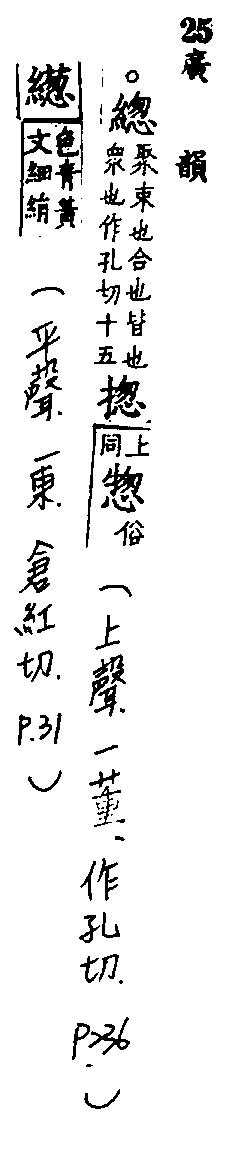 25廣韻
。緫聚束也合也皆也衆也作孔切十五揔上同惣俗(上聲.一董、作孔切.P.236.)
繱色青黃文細絹(平聲.一東.倉紅切.P.31)